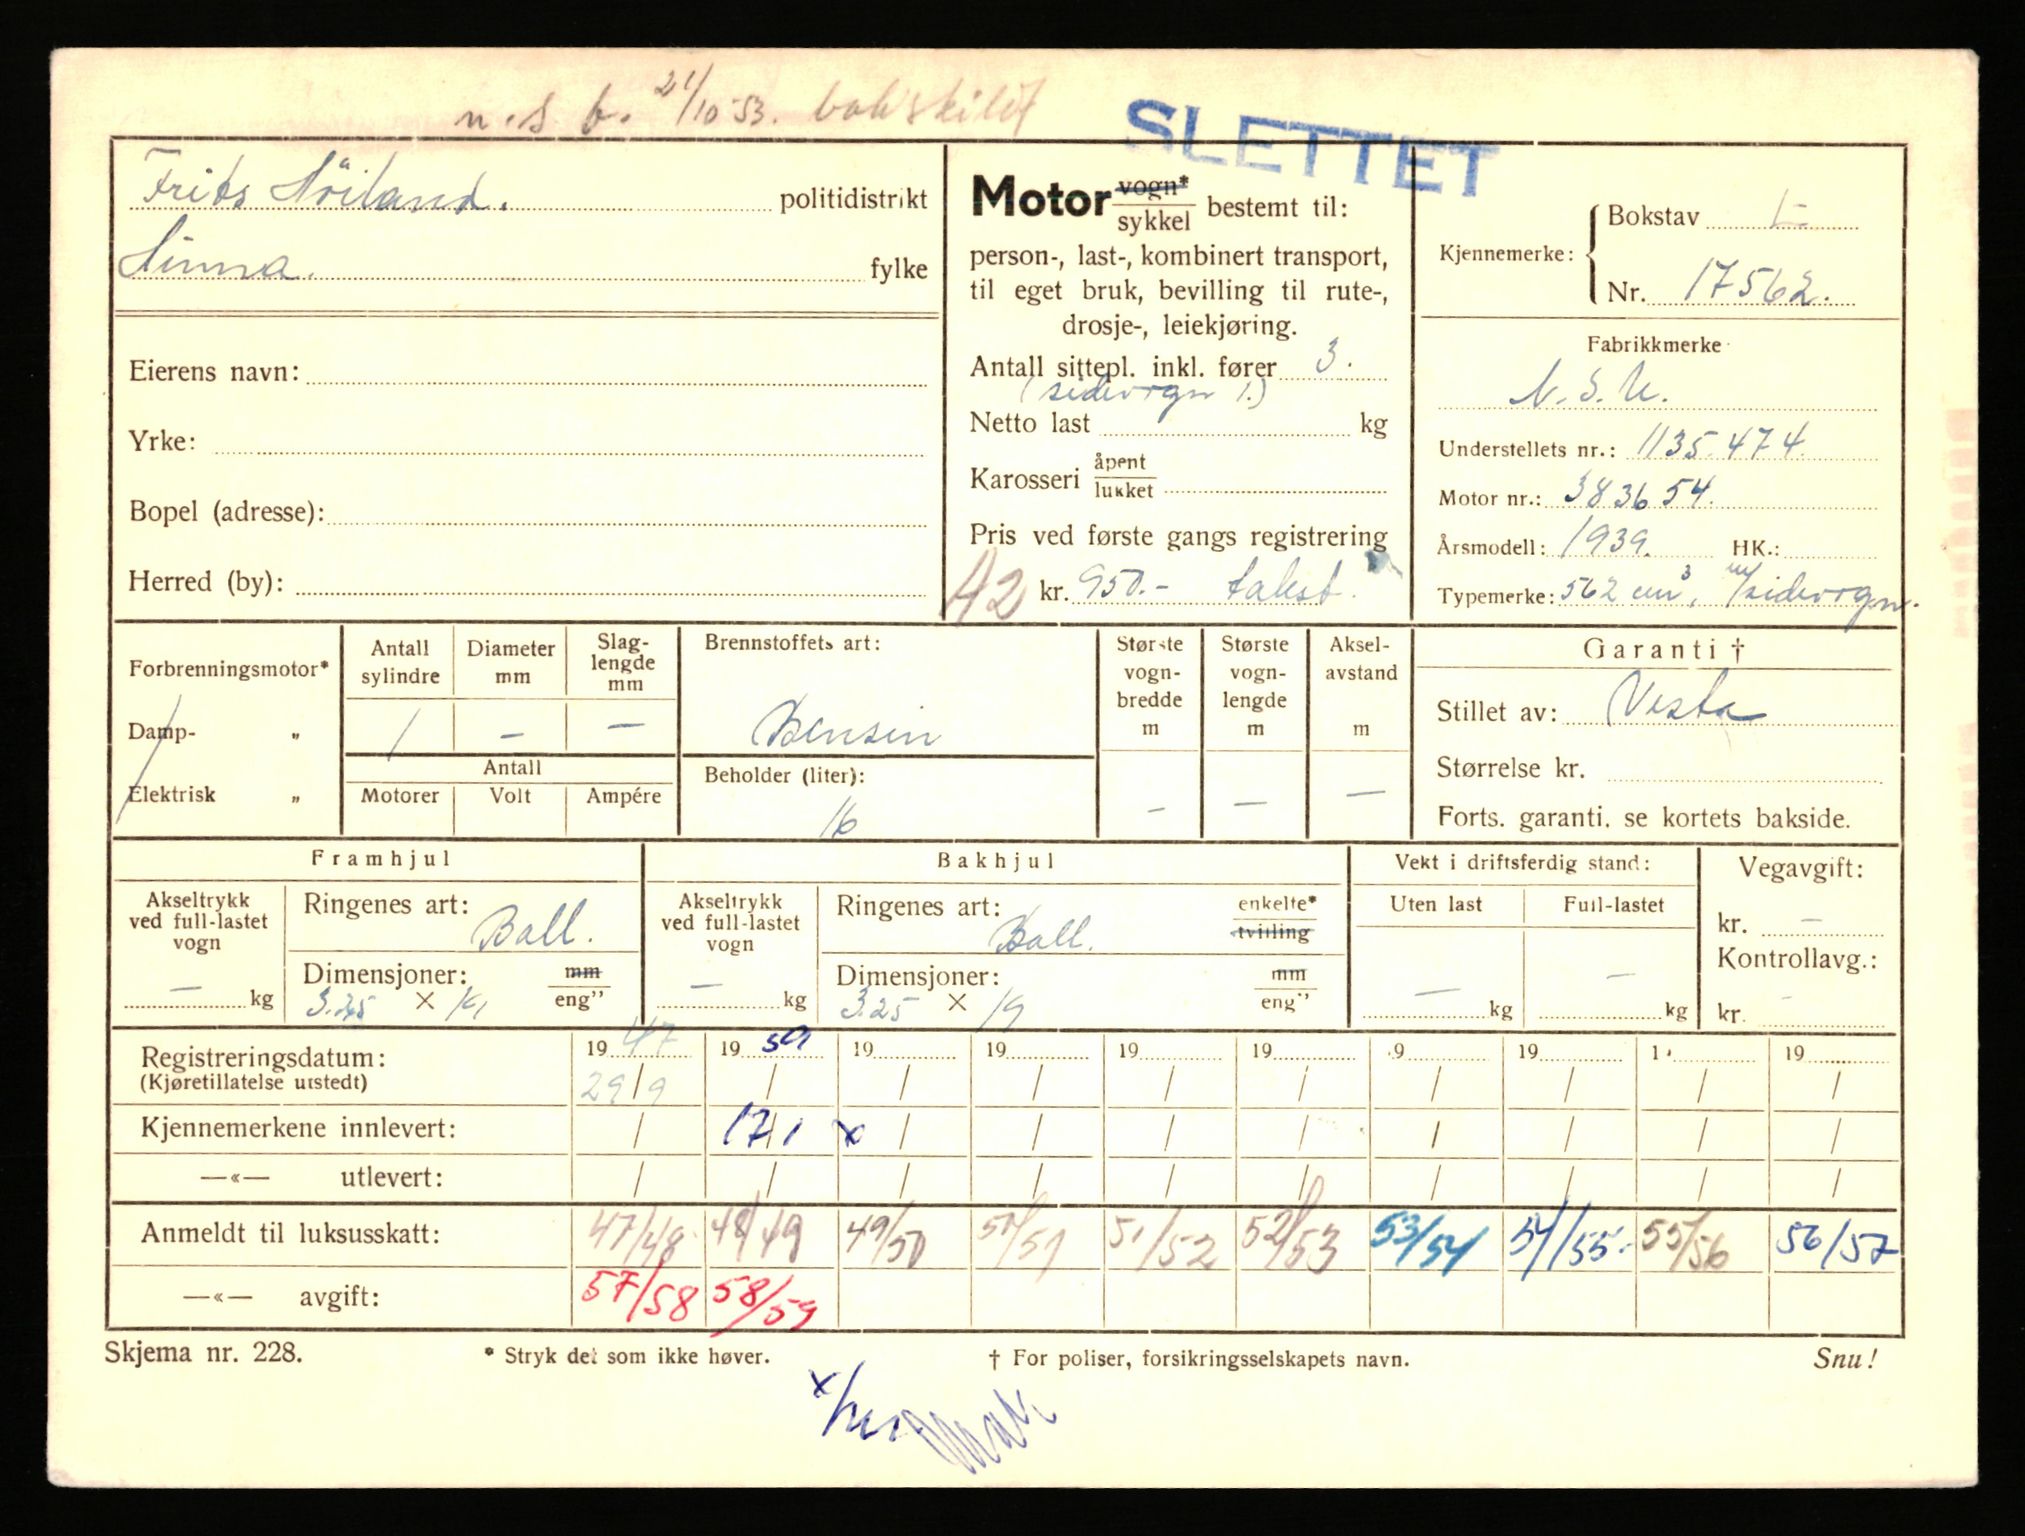 n.s.b. 21/10 53. bakskilt
SLETTET
Frits Höiland. politidistrikt
Hinna. fylke
Eierens navn:
Yrke:
Bopel (adresse):
Herred (by):
Motor vogn* sykkel bestemt til:
person-, last-, kombinert transport,
til eget bruk, bevilling til rute-,
drosje-, leiekjøring.
Antall sittepl. inkl. fører 3.
(sidevogn 1.)
Netto last kg
Karosseri åpent lukket
Pris ved første gangs registrering
A2 kr. 950.- takst.
Kjennemerke: Bokstav L
Nr. 17562.
Fabrikkmerke
N.S.U.
Understellets nr.: 1135.474.
Motor nr.: 383654.
Årsmodell: 1939. HK.:
Typemerke: 562 cm³, m/sidevogn.
Forbrenningsmotor*
Damp- „
Elektrisk „
Antall sylindre Diameter mm Slag-lengde mm
1 — —
Antall
Motorer Volt Ampére
Brennstoffets art:
Bensin
Beholder (liter):
16
Største vogn-bredde m Største vogn-lengde m Aksel-avstand m
— — —
Garanti †
Stillet av: Vesta
Størrelse kr.
Forts. garanti. se kortets bakside.
Framhjul
Akseltrykk ved full-lastet vogn
— kg
Ringenes art: Ball.
Dimensjoner: mm eng"
3.25 × 19
Bakhjul
Akseltrykk ved full-lastet vogn
— kg
Ringenes art: Ball. enkelte* tvilling
Dimensjoner: mm eng"
3.25 × 19
Vekt i driftsferdig stand:
Uten last Full-lastet
— kg — kg
Vegavgift:
kr. —
Kontrollavg.:
kr. —
Registreringsdatum: 19 47 19 59 19 19 19 19 19 19 19 19
(Kjøretillatelse utstedt) 29/9 / / / / / / / / /
Kjennemerkene innlevert: / 17/1 x / / / / / / / /
—«— utlevert: / / / / / / / / / /
Anmeldt til luksusskatt: 47/48 48/49 49/50 50/51 51/52 52/53 53/54 54/55 55/56 56/57
—«— avgift: 57/58 58/59
Skjema nr. 228. * Stryk det som ikke høver. † For poliser, forsikringsselskapets navn. Snu!